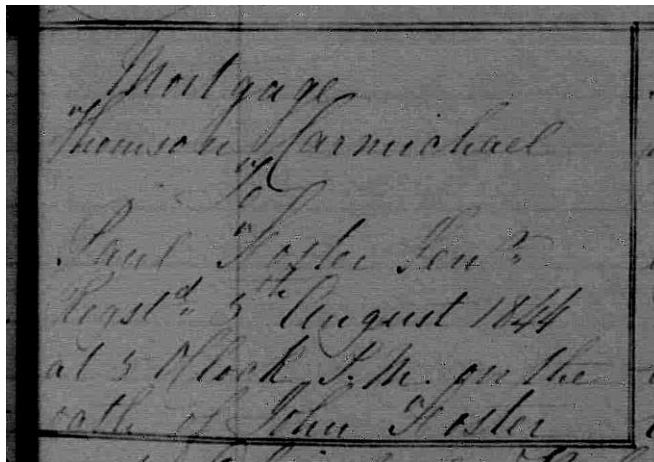 Mortgage
Thomson Carmichael
To
Paul Foster Senr.
Regstd. 5th August 1844
at 3 OClock P.M. on the
oath of John Foster